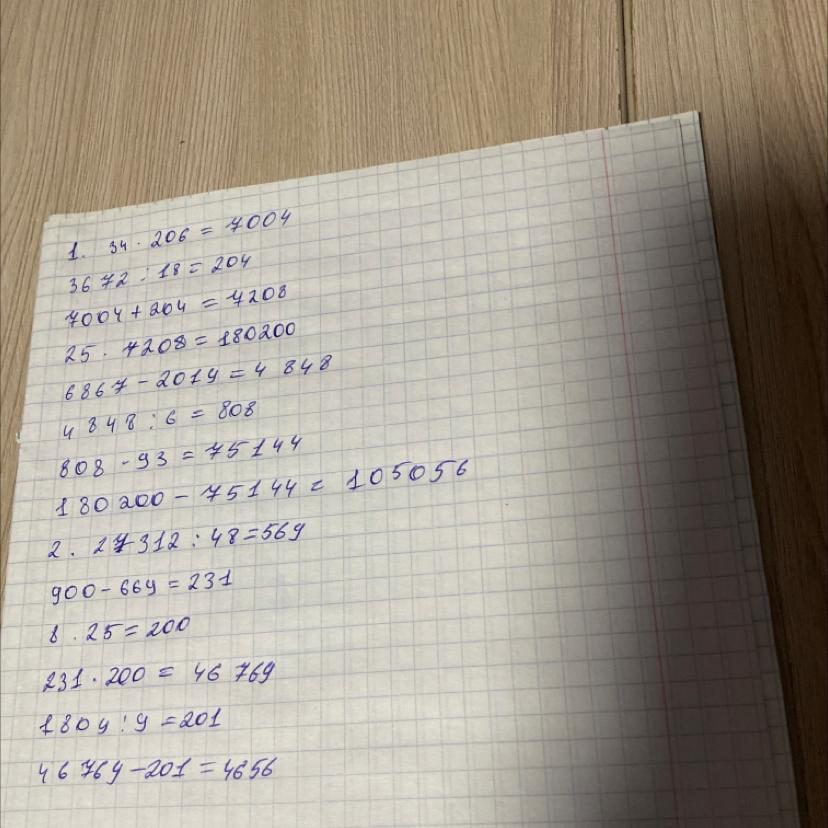 1. 34 · 206 = 7004
3672 : 18 = 204
7004 + 204 = 7208
25 · 7208 = 180200
6867 - 2019 = 4 848
4 848 : 6 = 808
808 - 93 = 75144
180200 - 75144 = 105056
2. 27312 : 48 = 569
900 - 669 = 231
8 · 25 = 200
231 · 200 = 46 769
1809 : 9 = 201
46 769 - 201 = 4656